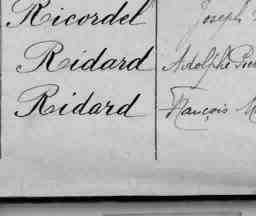 Ricordel Joseph
Ridard Adolphe
Ridard François